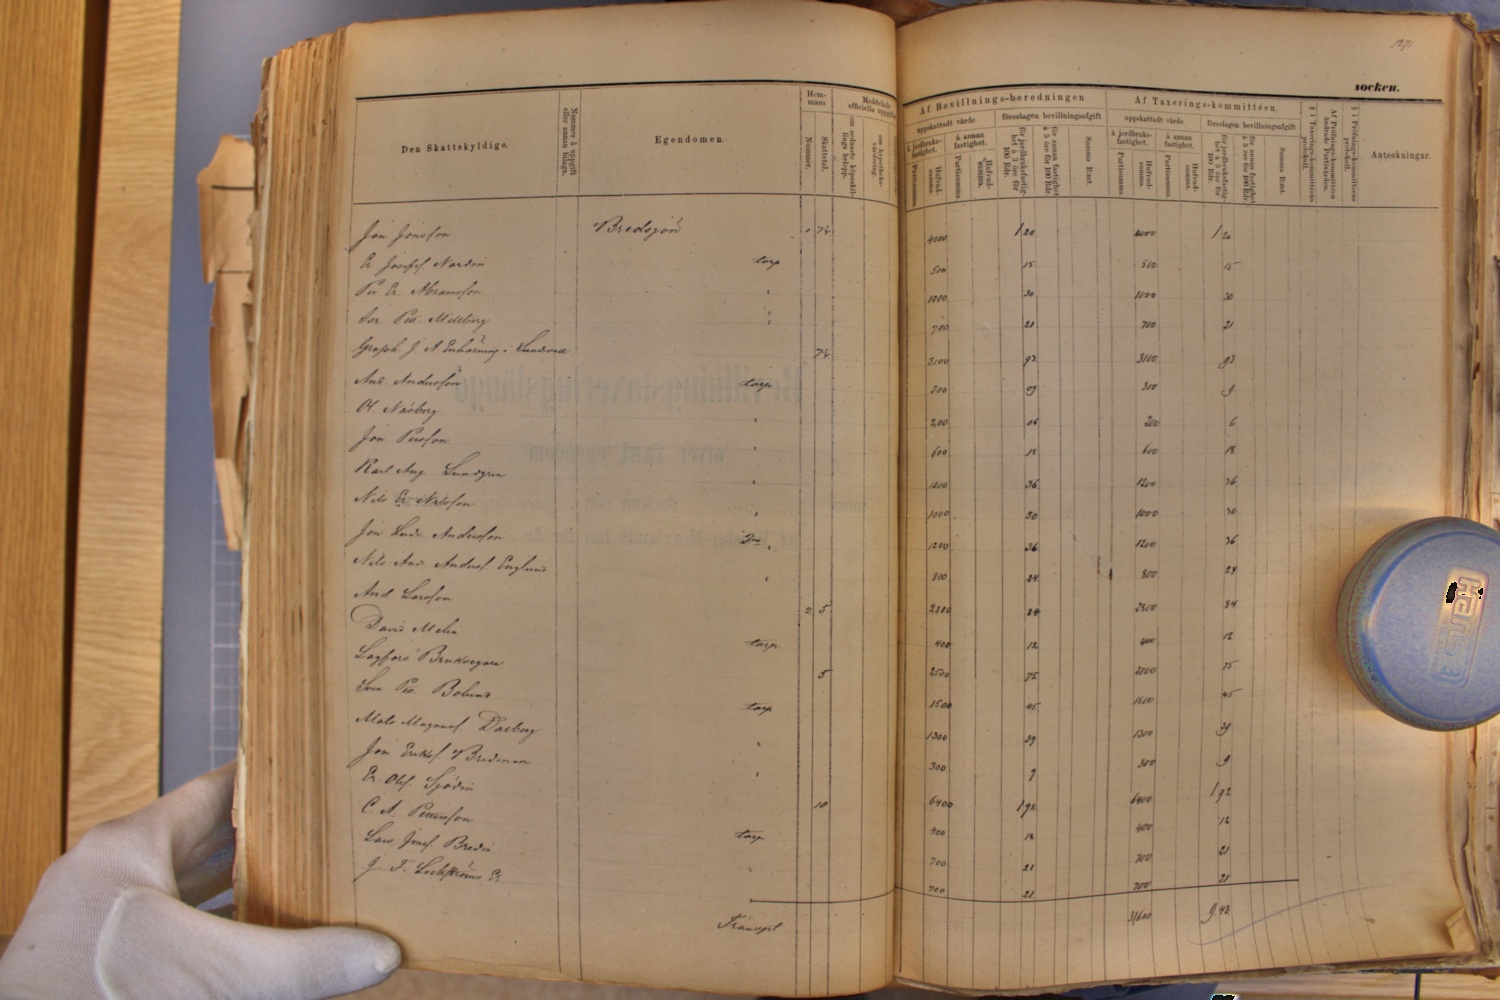 1271
socken.
Den Skattskyldige.
Nummer å uppgift eller annan bilaga.
Egendomen.
Hemmans
Nummer.
Skattetal.
Meddelade officiella
Af Bevillnings-beredningen
uppskattadt värde
å jordbruksfastighet.
å annan fastighet.
Partisumma.
Hufvudsumma.
Partisumma.
Hufvudsumma.
föreslagen bevillningsafgift
för jordbruksfastighet à 3 öre för 100 Rdr.
för annan fastighet à 5 öre för 100 Rdr.
Summa Rmt.
Af Taxerings-kommittéen.
uppskattadt värde
å jordbruksfastighet.
å annan fastighet.
Partisumma.
Hufvudsumma.
Partisumma.
Hufvudsumma.
föreslagen bevillningsafgift
för jordbruksfastighet à 3 öre för 100 Rdr.
för annan fastighet à 5 öre för 100 Rdr.
Summa Rmt.
§ i Taxerings-kommittéens protokoll.
Af Pröfnings-kommittéen ändrade Partivärden.
§ i Pröfnings-kommittéens protokoll.
Anteckningar.
Jon Jonsson Bredsjön 1 7½ 4000 1 20 4000 1 20
Er Josefsf. Nordin torp 500 15 500 15
Per Er. Abramsson " 1000 30 1000 30
Per Millberg " 700 21 700 21
Grossh. J. A Enhörning i Sundsvall 7½ 3100 93 3100 93
And. Andersson torp 300 09 300 9
Ol. Näsberg " 200 06 200 6
Jon Persson " 600 18 600 18
Karl Aug. Lundgren " 1200 36 1200 36
Nils Er. Nilsson " 1000 30 1000 30
Jon Ludv. Andersson " 1200 36 1200 36
Nils And. Andersf. Englund " 800 24 800 24
And Larsson 2 5 2800 84 2800 84
David Melin torp 400 12 400 12
Lagfors Bruksegare 5 2500 75 2500 75
Sven Per. Bolund torp 1500 45 1500 45
Mats Magnusf. Dasberg " 1300 39 1300 39
Jon Eriksf. Bredman " 300 9 300 9
Er Olsf. Sjödin 10 6400 1 92 6400 1 92
C. A. Pettersson torp 400 12 400 12
Lars Jonsf Bredin " 700 21 700 21
J. F. " 700 21 700 21
Transport 31600 9.48